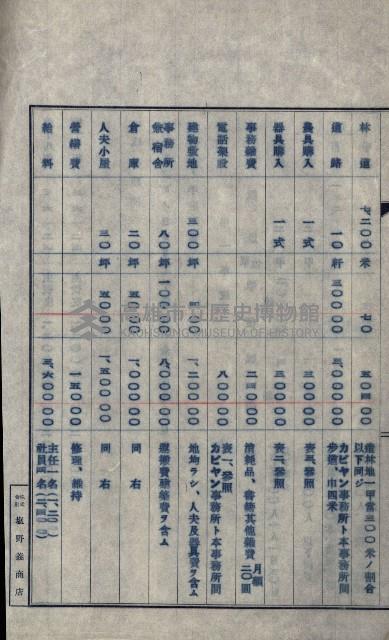 林道 七、二〇〇米 七〇 五〇四〇〇 造林地一甲當三〇〇米ノ割合 以下同ジ
道路 一〇粁 三〇〇〇〇 三、〇〇〇〇〇 カビヤン事務所ト本事務所間 歩道、巾四米
農具購入 一式 三〇〇〇〇 表三、參照
器具購入 一式 三〇〇〇〇 表二、參照
事務雜費 二四〇〇〇 消耗品、書籍其他雜費 月額二〇圓
電話架設 八〇〇〇〇 表一、參照 カビヤン事務所ト本事務所間
建物敷地 三〇〇坪 四〇〇 一、二〇〇〇〇 地均ラシ、人夫及器具費ヲ含ム
事務所兼宿舍 八〇坪 一〇〇〇〇 八、〇〇〇〇〇 運搬費建築費ヲ含ム
倉庫 二〇坪 五〇〇〇 一、〇〇〇〇〇 同右
人夫小屋 三〇坪 五〇〇〇 一、五〇〇〇〇 同右
營繕費 一五〇〇〇 修理、維持
給料 三、六〇〇〇〇 主任一名(一、二〇〇) 社員四名(二、四〇〇)
株式會社 塩野義商店
高雄市立歷史博物館
KAOHSIUNG MUSEUM OF HISTORY